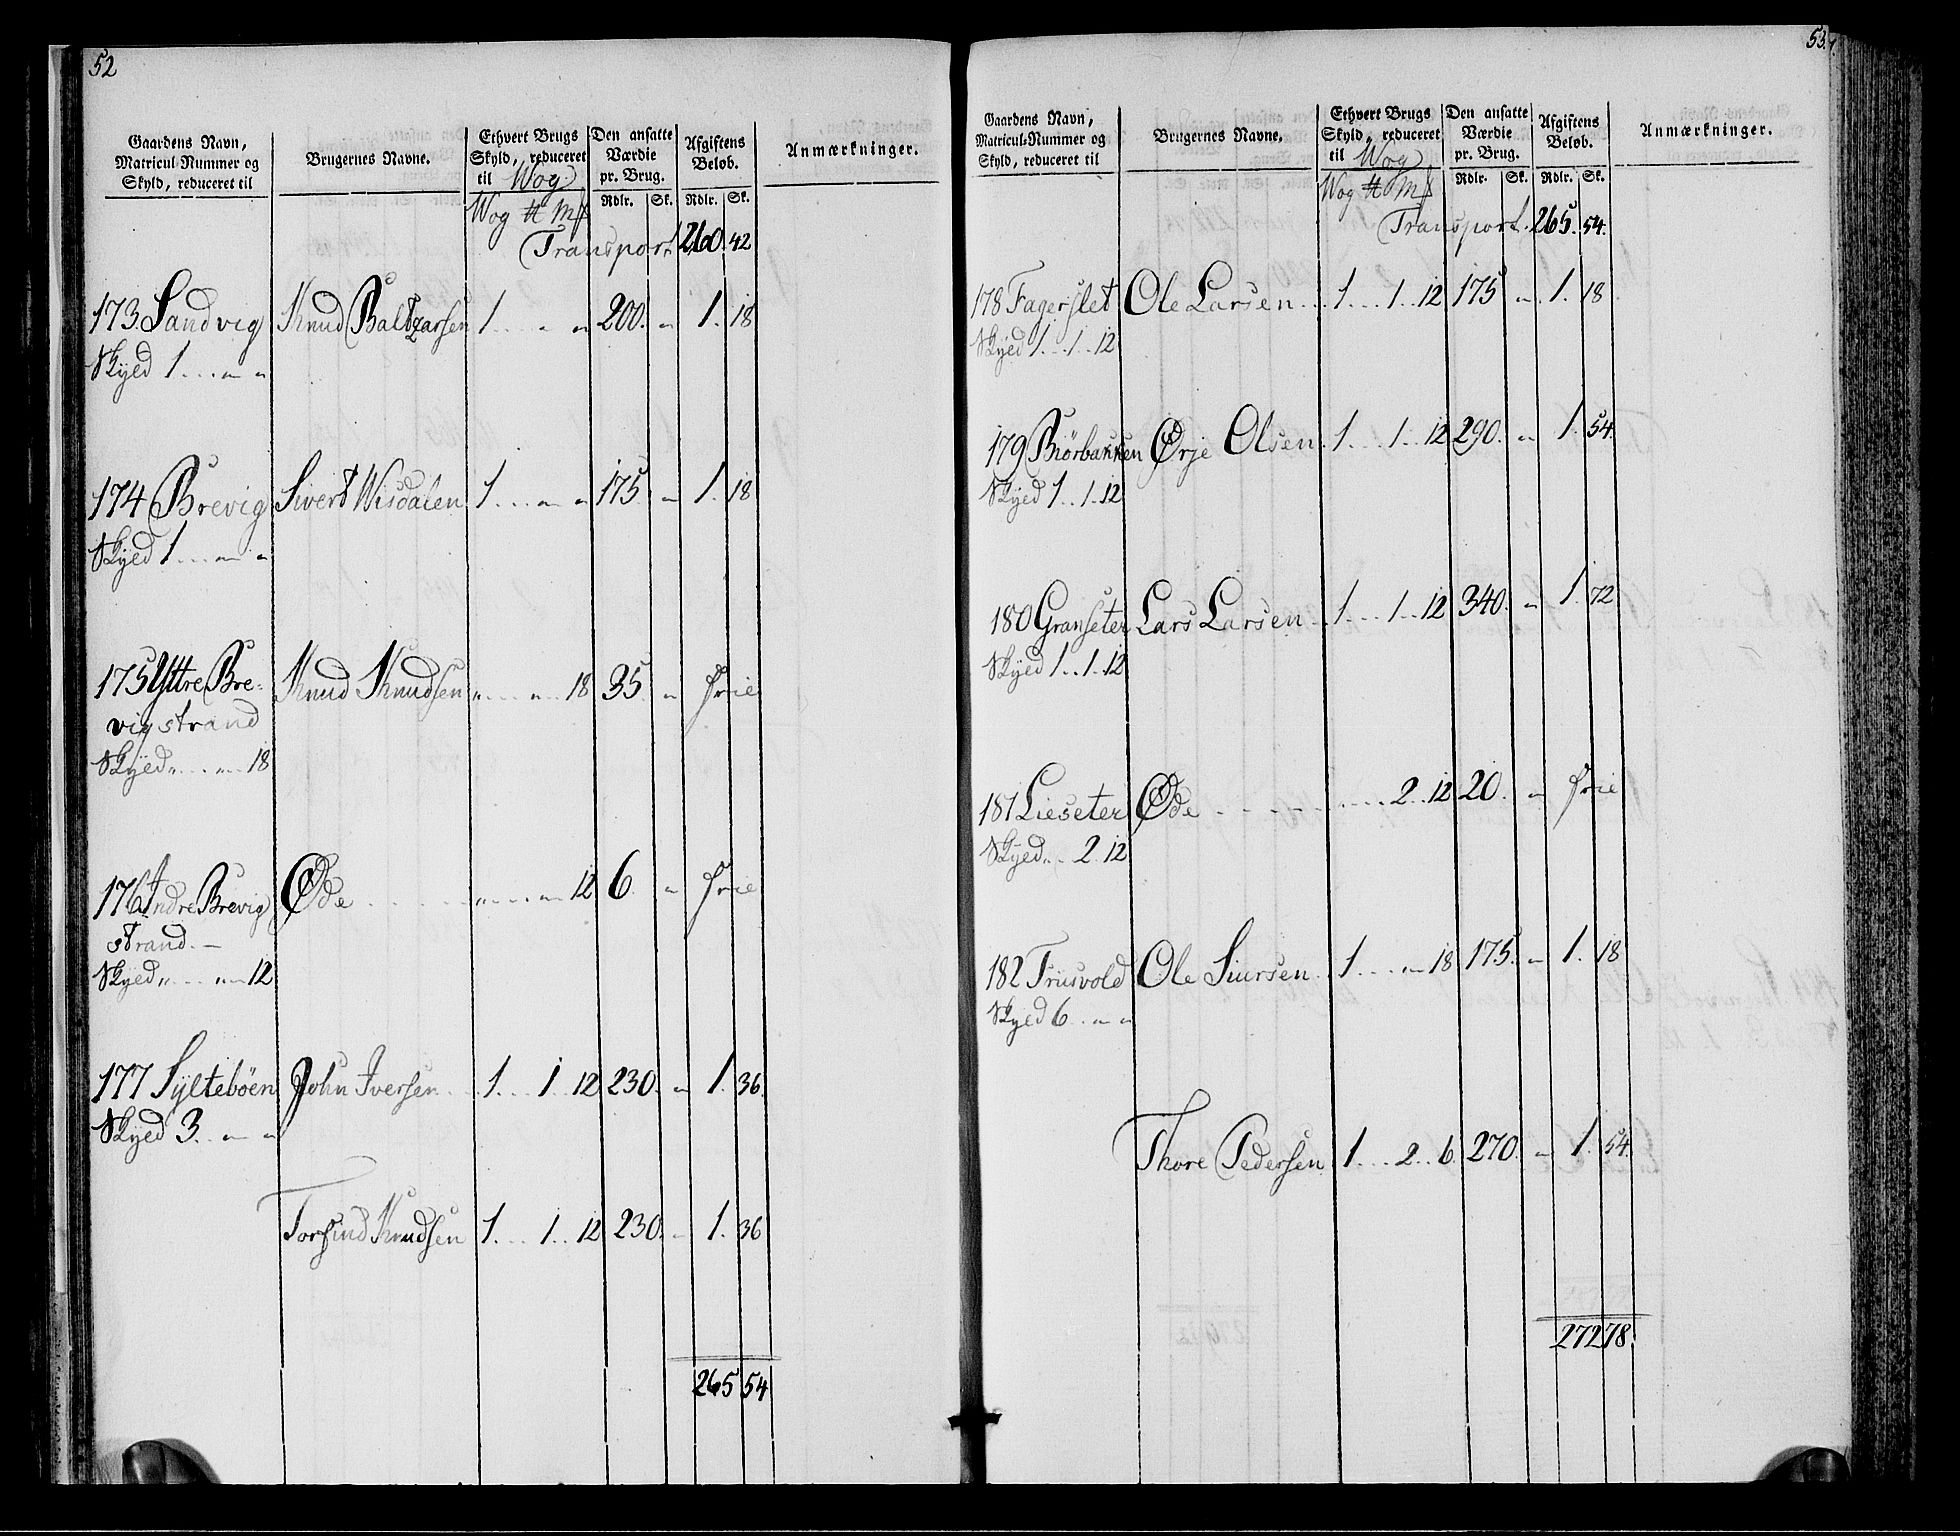 52
Gaardens Navn, Matricul-Nummer og Skyld, reduceret til | Brugernes Navne. | Ethvert Brugs Skyld, reduceret til Wog | Den ansatte Værdie pr. Brug. | Afgiftens Beløb. | Anmærkninger.
Wog ℔ Mk | Rdlr. Sk. | Rdlr. Sk.
Transport 260. 42
173. Sandvig Knud Baltzarsen 1 . . . „ „ 200. „ 1. 18
Skyed 1 . . . „ „
174 Brevig Sivert Wisdalen 1 . . . „ „ 175. „ 1. 18
Skyed 1 . . . „ „
175 Yttre Bre- Knud Knudsen „ . . . „ . . 18 35. „ frie
vigstrand
Skyed „ . . . „ . . 18
176 Indre Brevig Øde . . . . . „ . . . „ 12 6. „ frie
strand. —
Skyed „ . . . „ 12
177 Syltebøen John Iversen . . 1. . . 1 12 230. „ 1. 36.
Skyed 3. . „ „
Torfind Knudsen 1. . . 1. . 12 230. „ 1. 36
265 54
53.
Gaardens Navn, Matricul-Nummer og Skyld, reduceret til | Brugernes Navne. | Ethvert Brugs Skyld, reduceret til Wog | Den ansatte Værdie pr. Brug. | Afgiftens Beløb. | Anmærkninger.
Wog ℔ Mk | Rdlr. Sk. | Rdlr. Sk.
Transport. 265. 54.
178 Fagerslet Ole Larsen . . . 1. . . 1. . 12 175 „ 1. 18
Skyed 1. . 1. . 12
179 Biörbakken Ørje Olsen. 1. . . 1. . 12 290. „ 1. 54.
Skyed 1. . 1. . 12
180 Granseter Lars Larsen . . 1. . . 1. . 12 340. „ 1. 72
Skyed 1. . 1. . 12
181 Lieseter Øde - - - - . . . . . 2. . 12 20. „ frie
Skyed „ . . 2. 12
182 Trusvold Ole Siursen . . 1. . . „ 18 175. „ 1. 18
Skyed 6. . „ „
Thore Pedersen 1. . . 2. . 6. 270. „ 1. 54.
272 78.